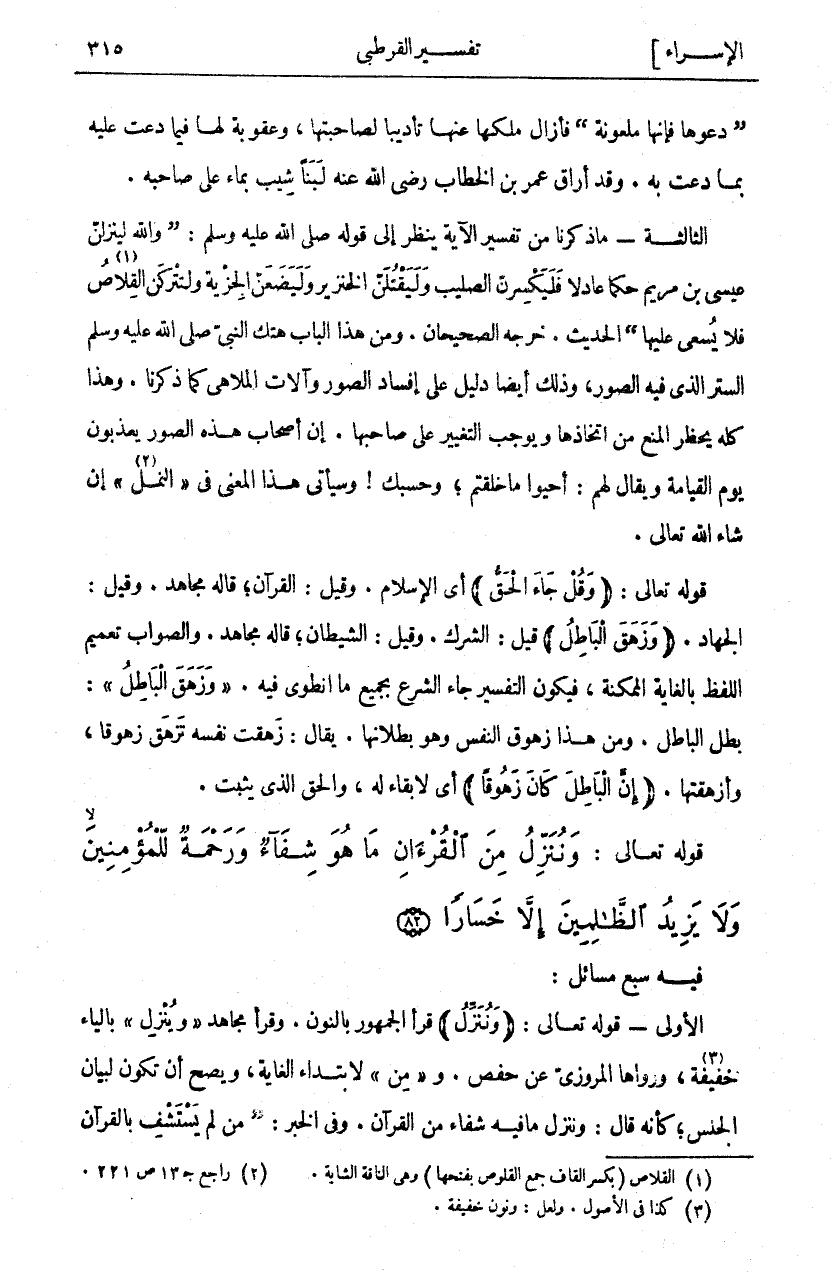 الإســراء ] تفســير القرطبى ٣١٥
” دعوها فإنها ملعونة “ فأزال ملكها عنهـا تأديبا لصاحبتها ، وعقوبة لهـا فيما دعت عليه
بمـا دعت به . وقد أراق عمر بن الخطاب رضى الله عنه لَبَنًا شِيب بماء على صاحبه .
الثالثــة — ماذكرنا من تفسير الآية ينظر إلى قوله صلى الله عليه وسلم : ” والله لينزلنّ
عيسى بن مريم حكما عادلا فَلَيَكْسِرنّ الصليب وَلَيَقْتُلَنّ الخنزير وَلَيَضَعَنّ الجزية ولتتركن القِلاصُ (١)
فلا يُسعى عليها “ الحديث . خرجه الصحيحان . ومن هذا الباب هتك النبىّ صلى الله عليه وسلم
الستر الذى فيه الصور، وذلك أيضا دليل على إفساد الصور وآلات الملاهى كما ذكرنا . وهذا
كله يحظر المنع من اتخاذها ويوجب التغيير على صاحبها . إن أصحاب هـذه الصور يعذبون
يوم القيامة ويقال لهم : أحيوا ماخلقتم ؛ وحسبك ! وسيأتى هـذا المعنى فى « النمـل » (٢) إن
شاء الله تعالى .
قوله تعالى : ﴿ وَقُلْ جَاءَ الْحَقُّ ﴾ أى الإسلام . وقيل : القرآن؛ قاله مجاهد . وقيل :
الجهاد . ﴿ وَزَهَقَ الْبَاطِلُ ﴾ قيل : الشرك . وقيل : الشيطان؛ قاله مجاهد . والصواب تعميم
اللفظ بالغاية الممكنة ، فيكون التفسير جاء الشرع بجميع ما انطوى فيه . « وَزَهَقَ الْبَاطِلُ » :
بطل الباطل . ومن هـذا زهوق النفس وهو بطلانها . يقال : زَهقت نفسه تَزهَق زهوقا ،
وأزهقتها . ﴿ إِنَّ الْبَاطِلَ كَانَ زَهُوقًا ﴾ أى لابقاء له ، والحق الذى يثبت .
قوله تعـالى : وَنُنَزِّلُ مِنَ ٱلْقُرْءَانِ مَا هُوَ شِفَآءٌ وَرَحْمَةٌ لِّلْمُؤْمِنِينَ ۙ
وَلَا يَزِيدُ ٱلظَّـٰلِمِينَ إِلَّا خَسَارًا ﴿٨٢﴾
فيــه سبع مسائل :
الأولى — قوله تعـالى : ﴿ وَنُنَزِّلُ ﴾ قرأ الجمهور بالنون . وقرأ مجاهد « ويُنْزِل » بالياء
خفيفة (٣) ، ورواها المروزىّ عن حفص . و « مِن » لابتـداء الغاية، ويصح أن تكون لبيان
الجنس؛ كأنه قال : وننزل مافيـه شفاء من القرآن . وفى الخبر : ” من لم يَسْتَشْفِ بالقرآن
(١) القلاص (بكسر القاف جمع القلوص بفتحها) وهى الناقة الشابة . (٢) راجع جـ ١٣ ص ٢٢١ .
(٣) كذا فى الأصول . ولعل : ونون خفيفة .